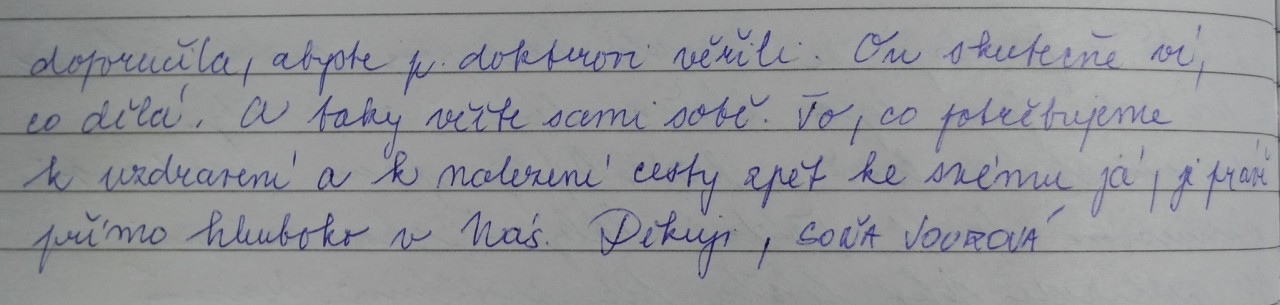 doporučila, abyste p. doktorovi věřili. On skutečně ví,
co dělá. A taky věřte sami sobě. To, co potřebujeme
k uzdravení a k nalezení cesty zpět ke svému já, je právě
přímo hluboko v Nás. Děkuji, SOŇA